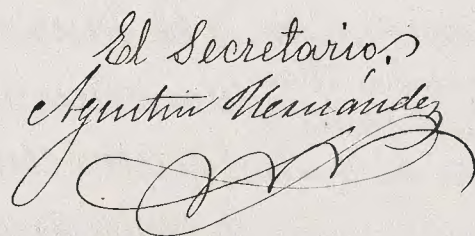 El Secretario,
Agustin Hernández